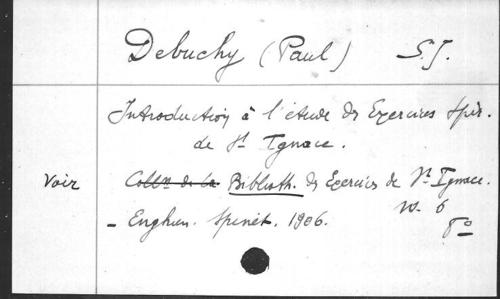 Debuchy (Paul) S.J.
Introduction à l'étude des Exercices Spir.
de St Ignace.
Voir Colln de la Biblioth. des Exercices de St Ignace.
no. 6
– Enghien. Spinet. 1906. 8o